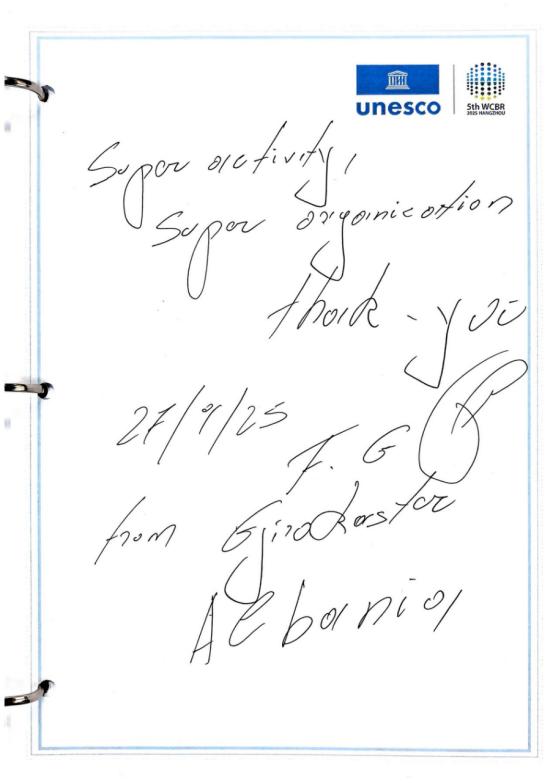 unesco
5th WCBR
2025 HANGZHOU
Super activity,
Super organication
thank-you
27/9/25
F. G
from Gjirokaster
Albania